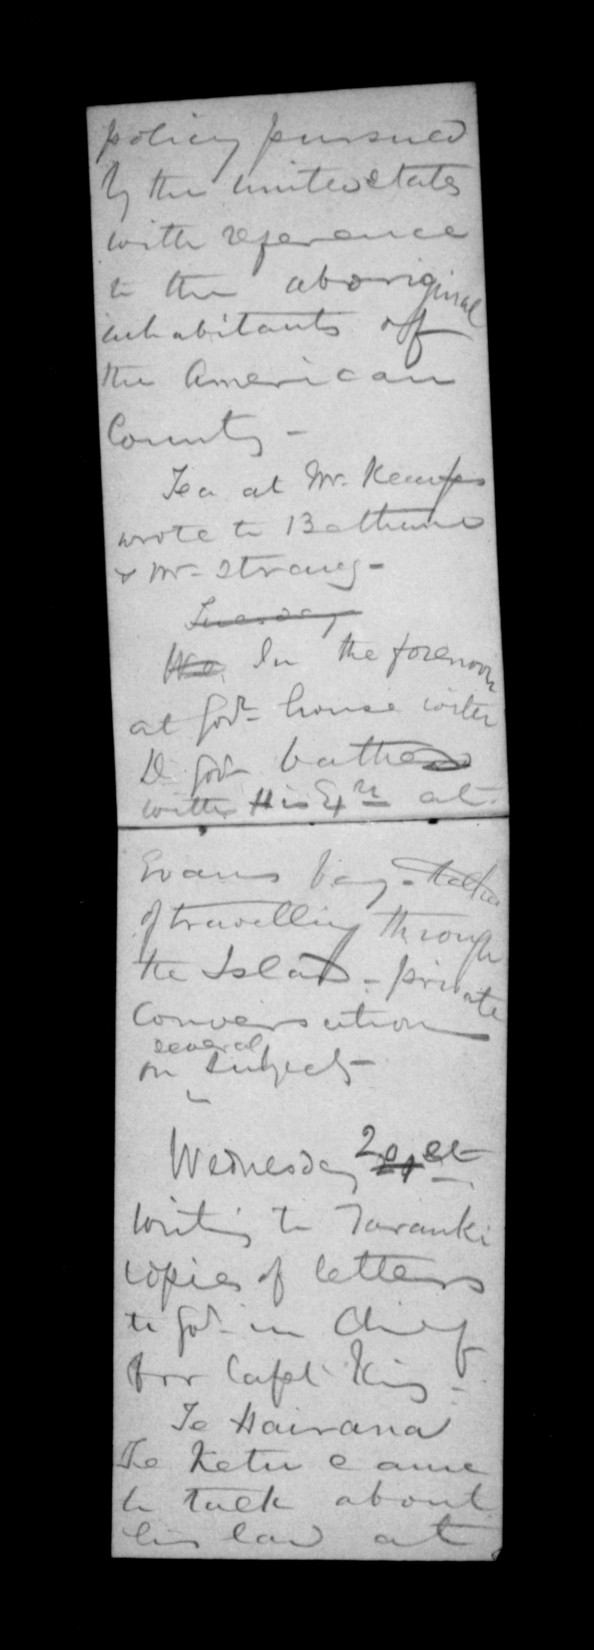 policy pursued
by the united states
with reference
to the aboriginal
inhabitants off
the American
County -
Tea at Mr. Kemps
wrote to Bethune
& Mr. Strang -
Tuesday
We. In the forenoon
at Govr. house with
D Govr bathed
with His Ey at
Evans bay - talked
of travelling through
the Island - private
Conversation
several
on subjects -
Wednesday 21st
writing to Taranki
copies of letters
to Govr. in Chief
for Capt King -
Te Hairana
Te Ketu came
to talk about
his land at